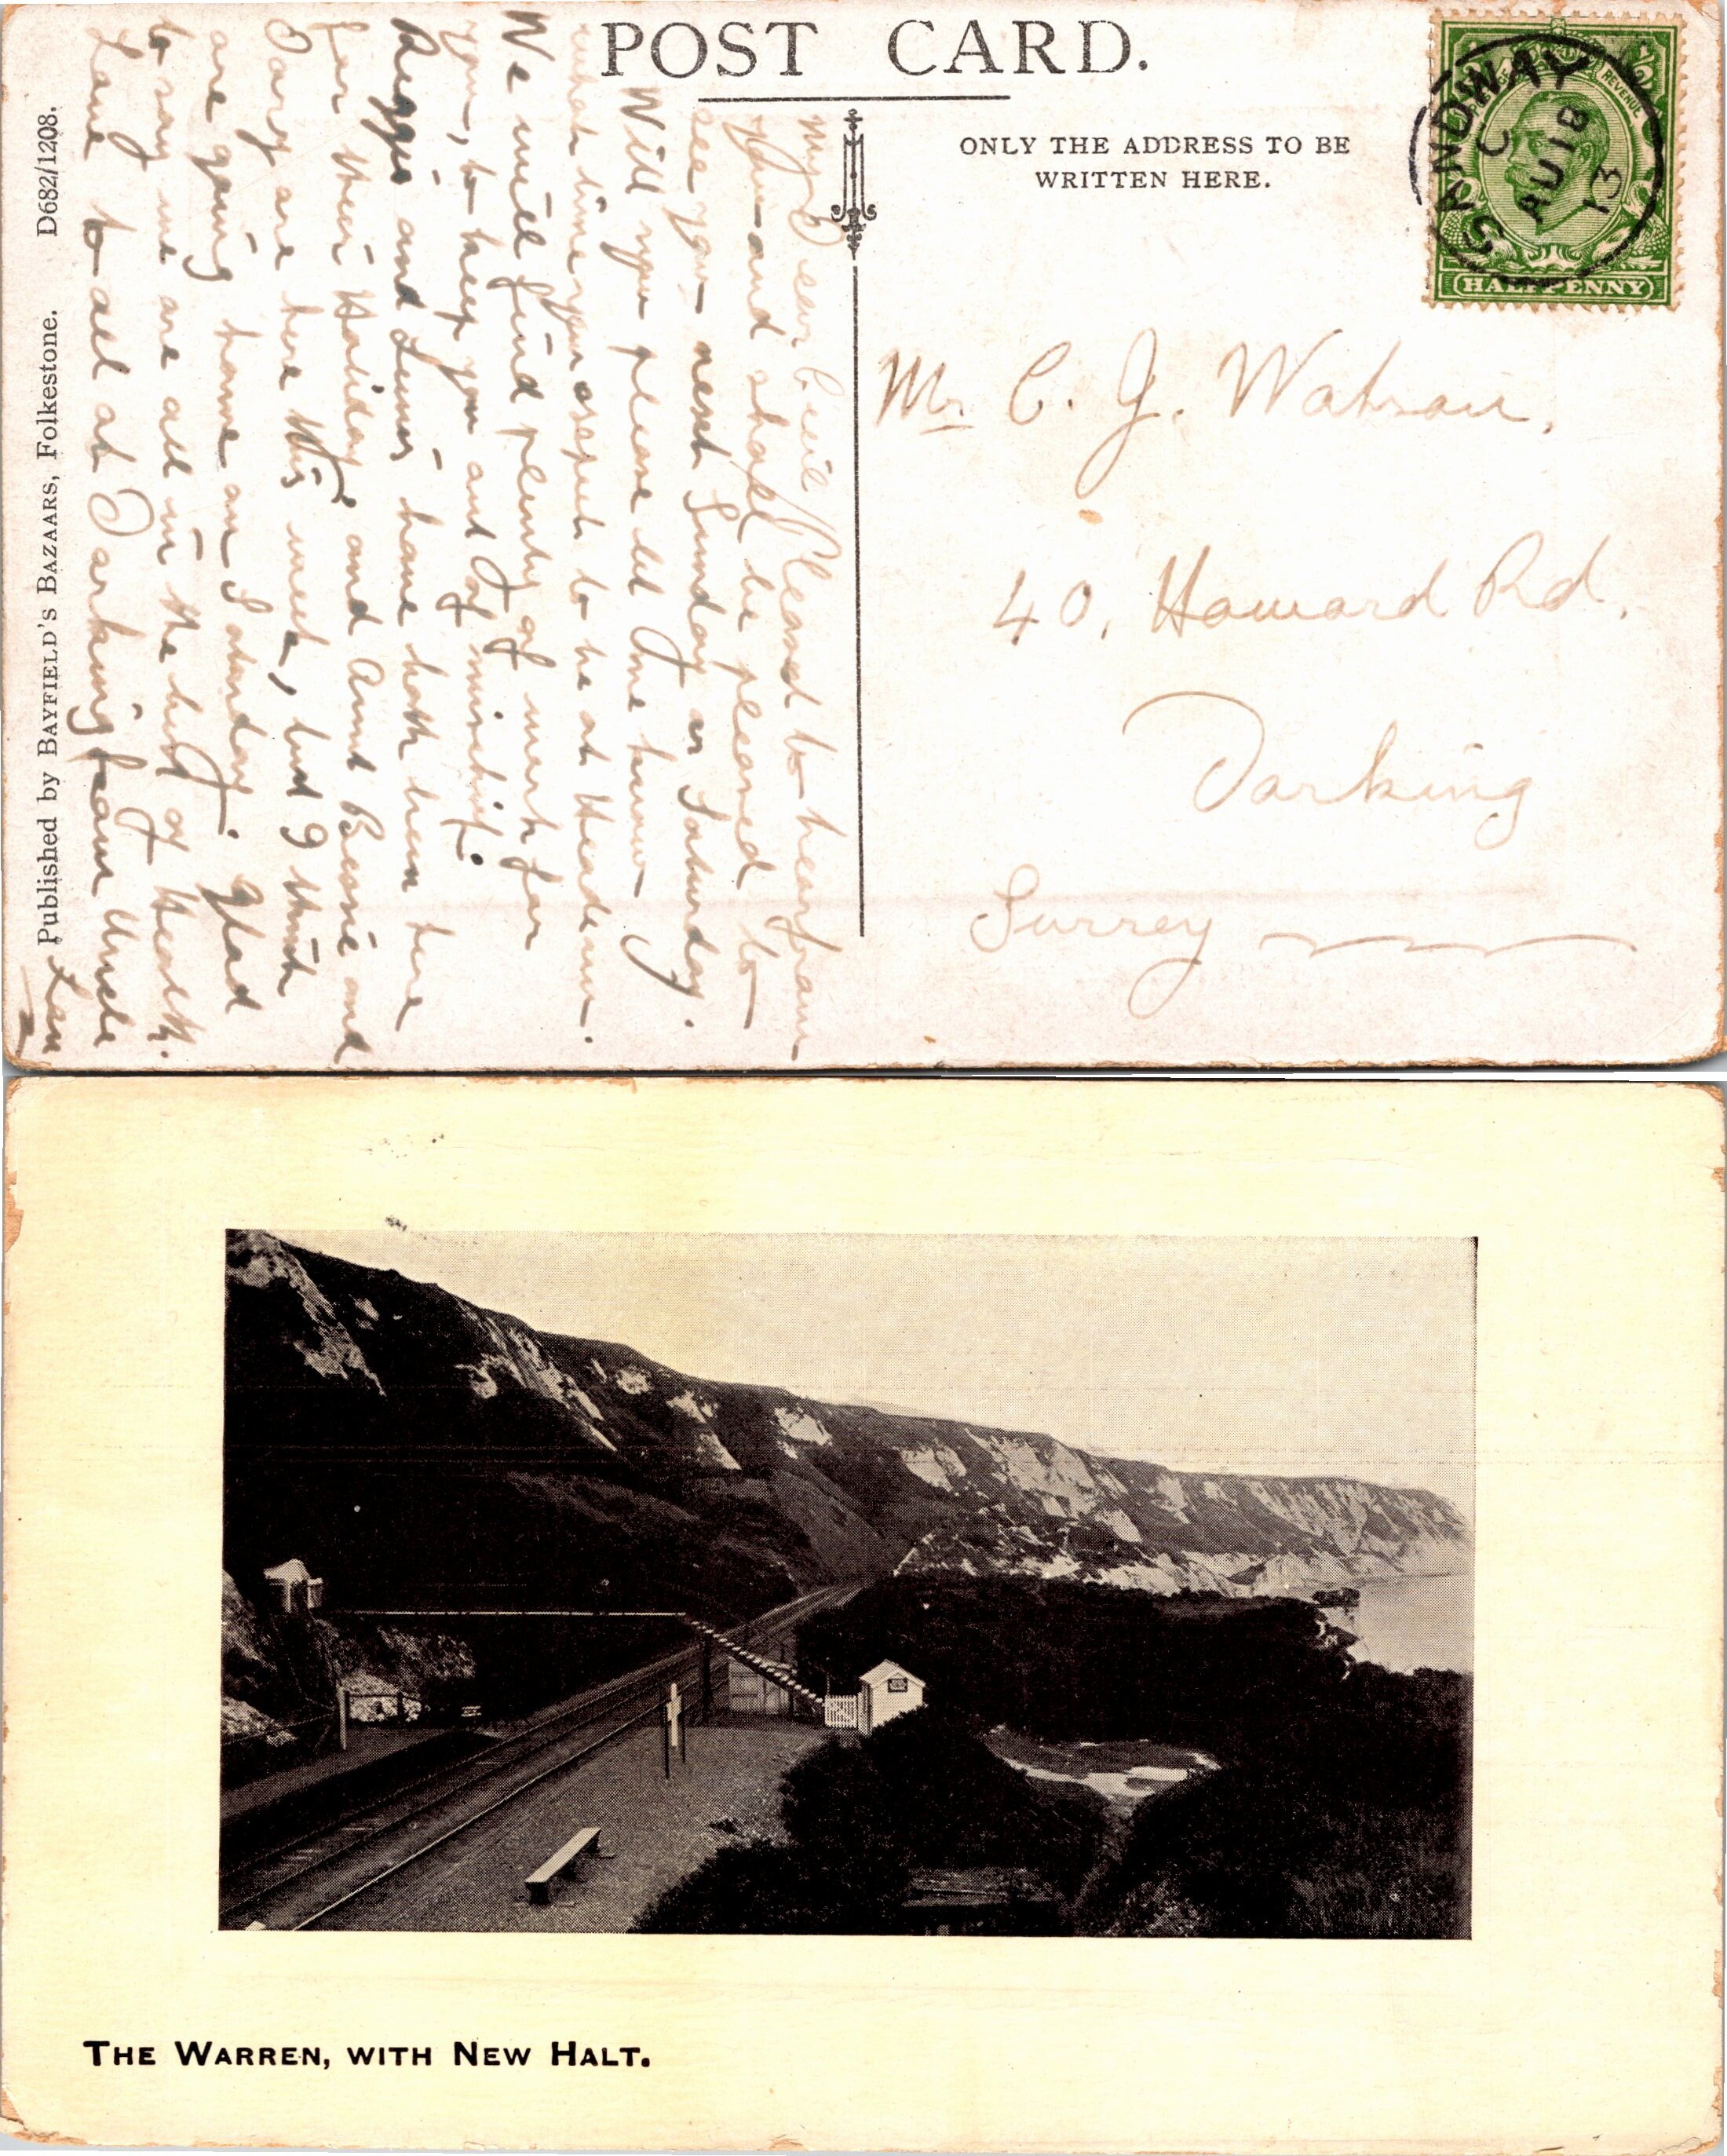 POST CARD.
ONLY THE ADDRESS TO BE
WRITTEN HERE.
SANDWAY
C
AU 18
13
REVENUE
HALFPENNY
Mr C. J. Watson.
40, Howard Rd.
Dorking
Surrey
My Dear Cecil Pleased to hear from
you and shall be pleased to
see you next Sunday or Saturday.
Will you please let me know
what time you expect to be at Headcorn.
We will find plenty of work for
you, to keep you out of mischief.
Reggie and have both been here
for their Holiday, and Aunt Bessie and
Dory are here this week, but I think
are going home on Saturday. Glad
to say we are all in the best of Health.
Love to all at Dorking from Uncle
Len
Published by BAYFIELD'S BAZAARS, Folkestone. D682/1208.
THE WARREN, WITH NEW HALT.